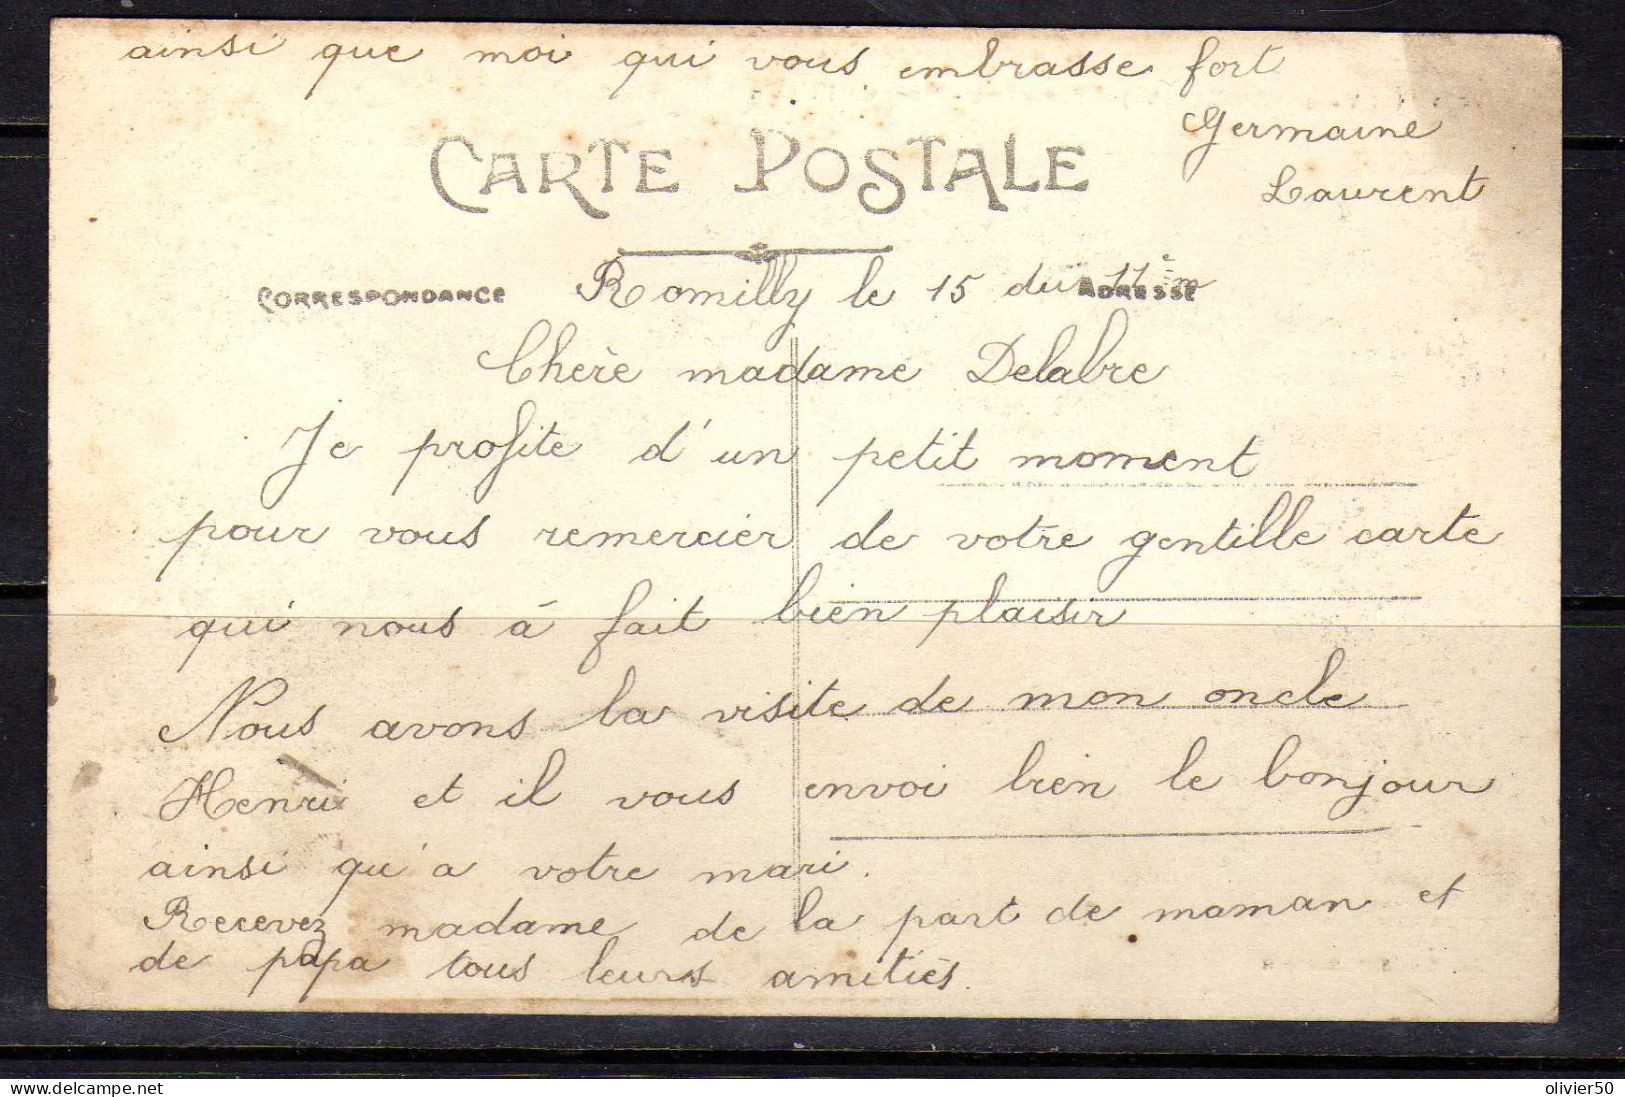 ainsi que moi qui vous embrasse fort
Germaine
Laurent
CARTE POSTALE
CORRESPONDANCE
ADRESSE
Romilly le 15 du 11è m
Chère madame Delabre
Je profite d'un petit moment
pour vous remercier de votre gentille carte
qui nous à fait bien plaisir
Nous avons la visite de mon oncle
Henri et il vous envoi bien le bonjour
ainsi qu'a votre mari.
Recevez madame de la part de maman et
de papa tous leurs amitiés.
olivier50